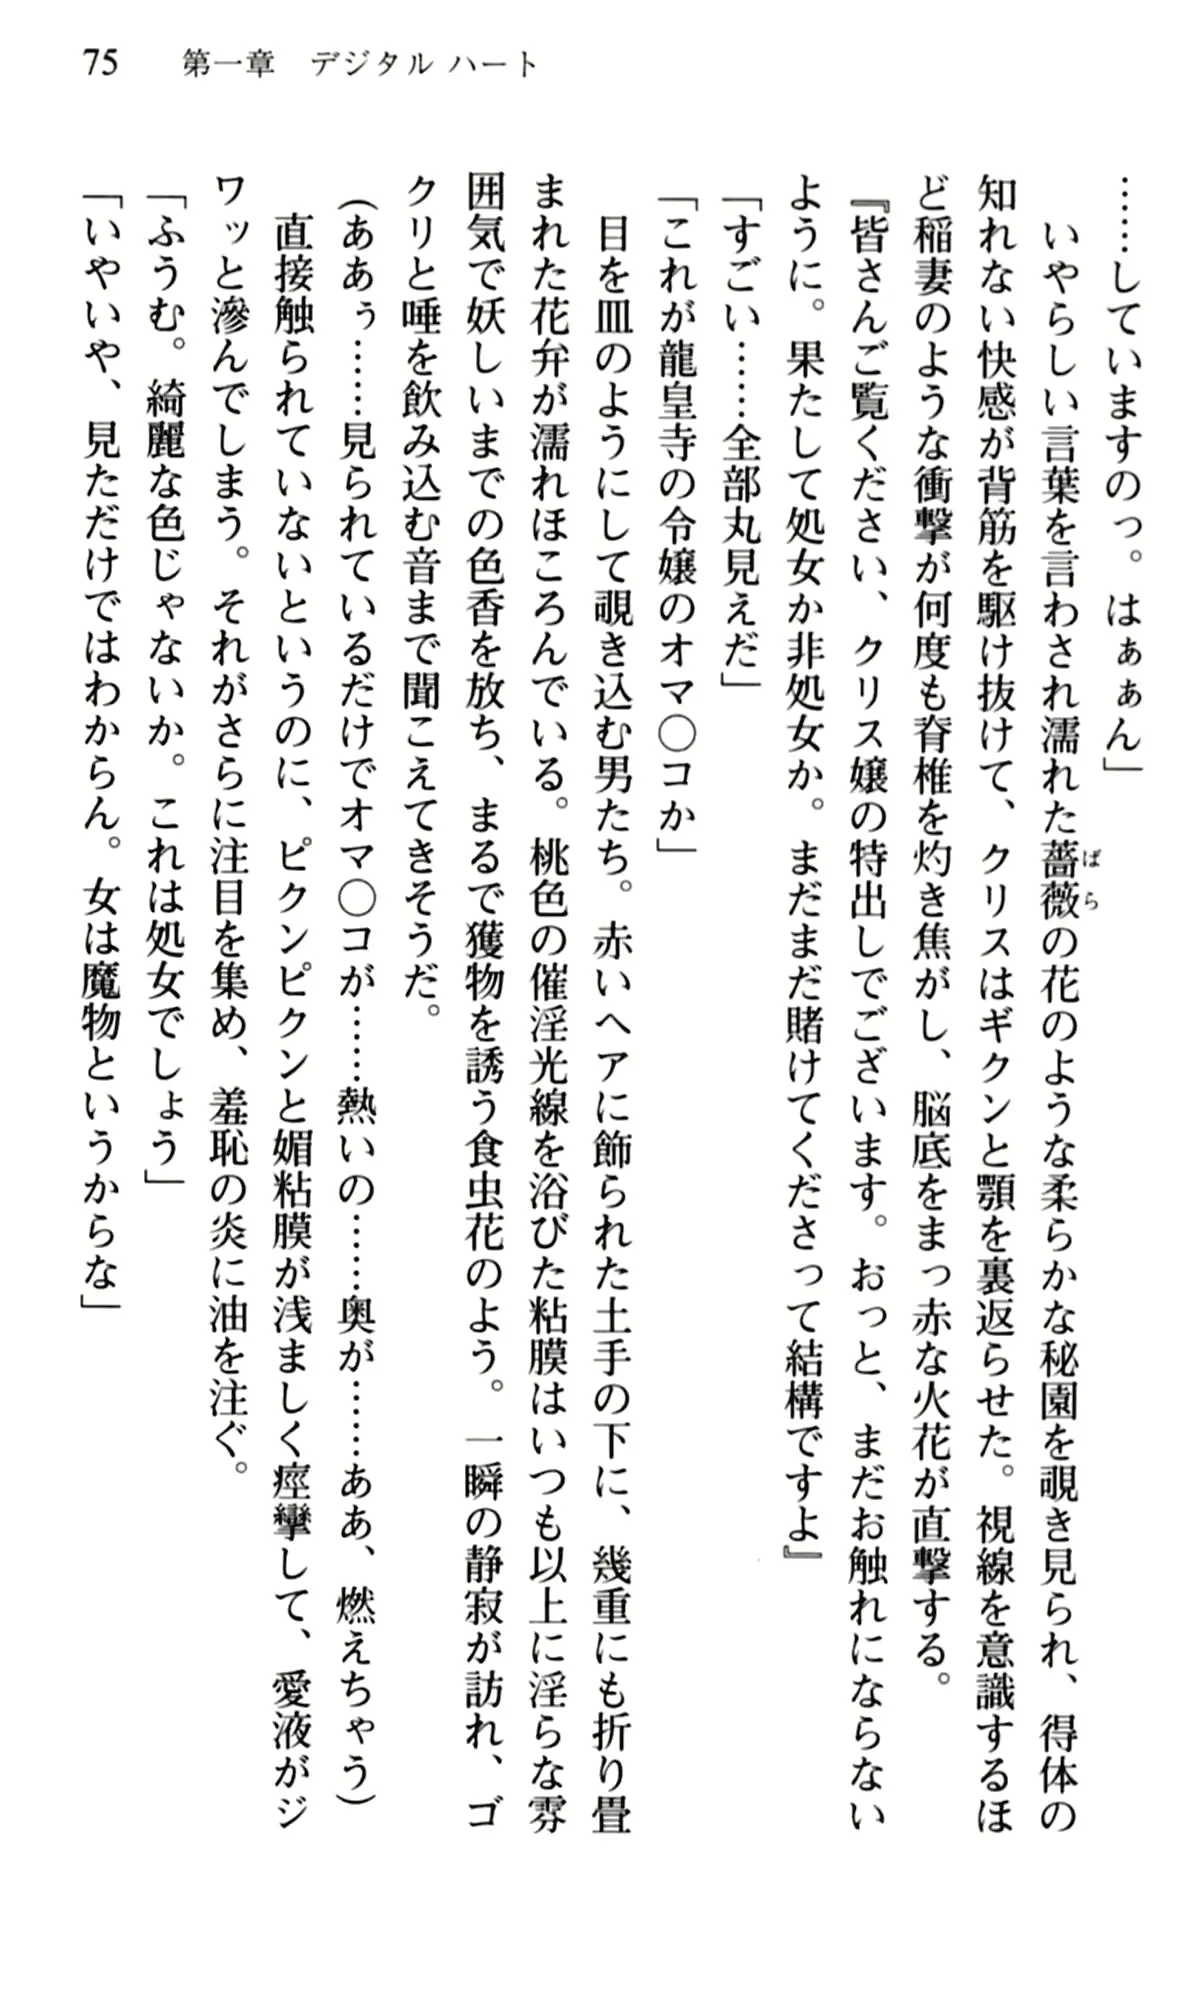 75　第一章　デジタル ハート
……していますのっ。はぁぁん」
いやらしい言葉を言わされ濡れた薔薇の花のような柔らかな秘園を覗き見られ、得体の
知れない快感が背筋を駆け抜けて、クリスはギクンと顎を裏返らせた。視線を意識するほ
ど稲妻のような衝撃が何度も脊椎を灼き焦がし、脳底をまっ赤な火花が直撃する。
『皆さんご覧ください、クリス嬢の特出しでございます。おっと、まだお触れにならない
ように。果たして処女か非処女か。まだまだ賭けてくださって結構ですよ』
「すごい……全部丸見えだ」
「これが龍皇寺の令嬢のオマ〇コか」
目を皿のようにして覗き込む男たち。赤いヘアに飾られた土手の下に、幾重にも折り畳
まれた花弁が濡れほころんでいる。桃色の催淫光線を浴びた粘膜はいつも以上に淫らな雰
囲気で妖しいまでの色香を放ち、まるで獲物を誘う食虫花のよう。一瞬の静寂が訪れ、ゴ
クリと唾を飲み込む音まで聞こえてきそうだ。
（あぁぅ……見られているだけでオマ〇コが……熱いの……奥が……ああ、燃えちゃう）
直接触られていないというのに、ピクンピクンと媚粘膜が浅ましく痙攣して、愛液がジ
ワッと滲んでしまう。それがさらに注目を集め、羞恥の炎に油を注ぐ。
「ふうむ。綺麗な色じゃないか。これは処女でしょう」
「いやいや、見ただけではわからん。女は魔物というからな」